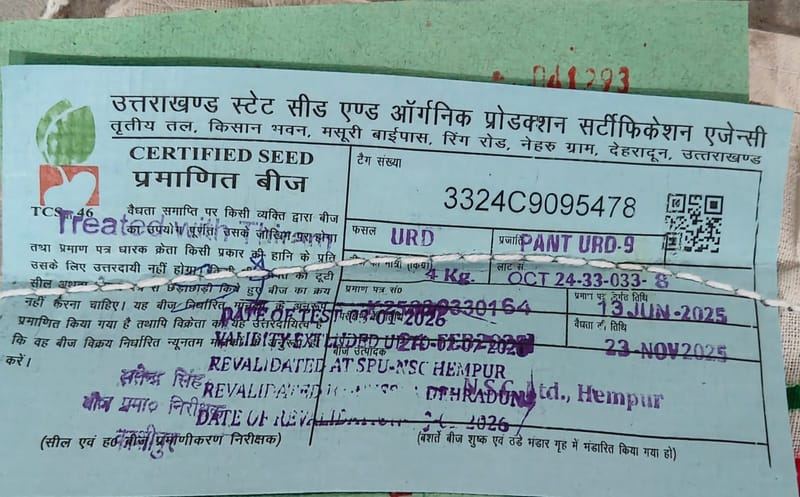 041293
उत्तराखण्ड स्टेट सीड एण्ड ऑर्गनिक प्रोडक्शन सर्टीफिकेशन एजेन्सी
तृतीय तल, किसान भवन, मसूरी बाईपास, रिंग रोड, नेहरु ग्राम, देहरादून, उत्तराखण्ड
CERTIFIED SEED
प्रमाणित बीज
टैग संख्या
3324C9095478
TCS 46
Treated with
वैधता समाप्ति पर किसी व्यक्ति द्वारा बीज
का उपयोग पूर्णतः उसके जोखिम पर होगा
तथा प्रमाण पत्र धारक क्रेता किसी प्रकार की हानि के प्रति
उसके लिए उत्तरदायी नहीं होगा की टूटी
सील अथवा छेड़छाड़ किये हुए बीज का क्रय
नहीं करना चाहिए। यह बीज निर्धारित के अनुरूप
प्रमाणित किया गया है तथापि विक्रेता का यह उत्तरदायित्व है
कि वह बीज विक्रय निर्धारित न्यूनतम
करें।
फसल URD
प्रजाति PANT URD-9
4 Kg.
लाट सं OCT 24-33-033-8
प्रमाण पत्र सं०
30164
तिथि
13 JUN-2025
वैधता ति.
23-NOV2025
बीज उत्पादक
N.S.C. Ltd., Hempur
DATE OF TEST 03-01-2026
REVALIDATED AT SPU-NSC HEMPUR
REVALIDATED DEHRADUN
DATE OF 2026
सिंह
बीज प्रमा० निरीक्षक
(सील एवं ह० बीज प्रमाणीकरण निरीक्षक)
(बशर्ते बीज शुष्क एवं ठंडे भंडार गृह में भंडारित किया गया हो)